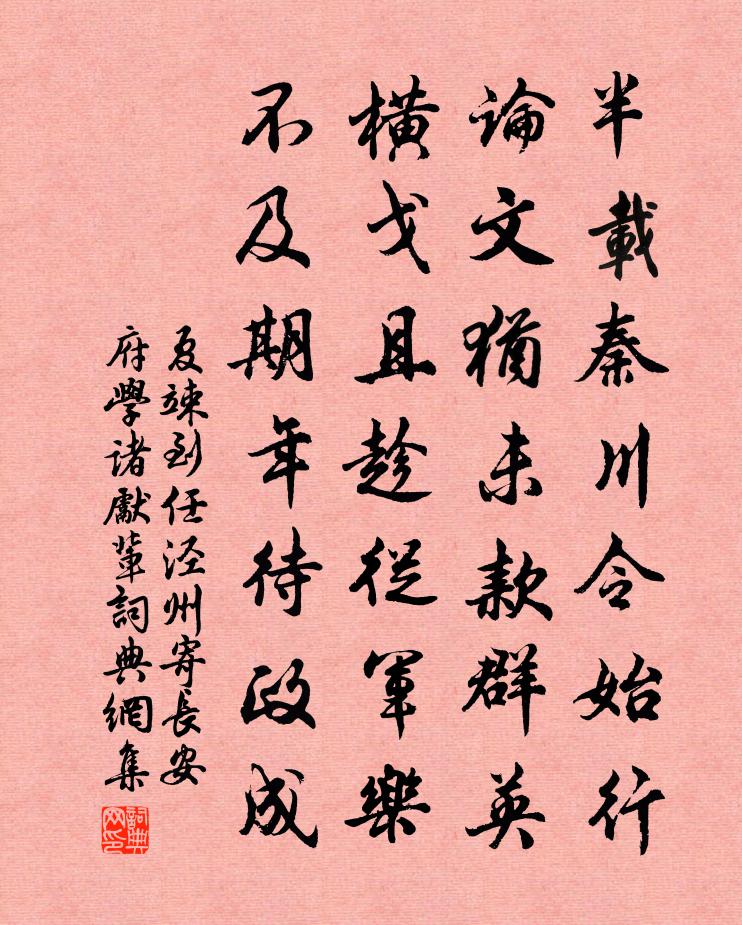 半載秦川令始行
論文猶未款群英
橫戈且趁從軍樂
不及期年待政成
夏竦到任涇州寄長安
府學诸獻輩詞典網集
詞典网印